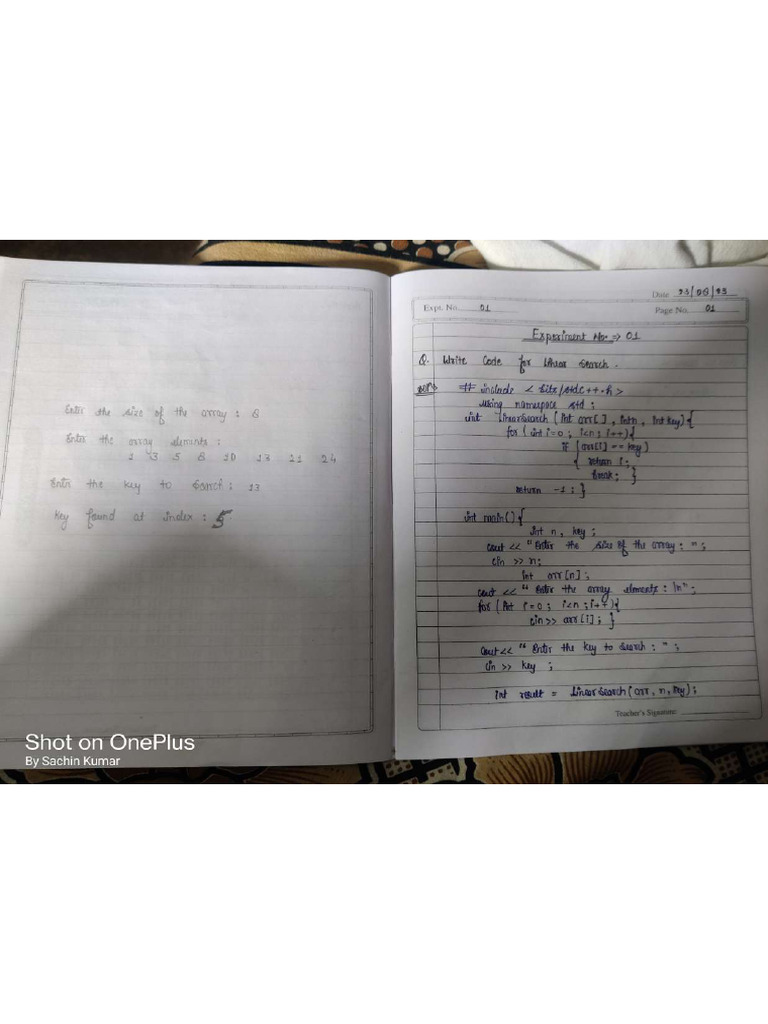 Enter the size of the array : 8
Enter the array elements :
1 3 5 8 10 13 21 24
Enter the key to search : 13
Key found at index : 5
Shot on OnePlus
By Sachin Kumar
Date 23/08/23
Expt. No. 01
Page No. 01
Experiment No. => 01
Q. Write Code for Linear Search.
Sol^n=> # include < bits/stdc++.h >
using namespace std ;
int LinearSearch (int arr[] , int n, int key){
for (int i=0 ; i<n ; i++){
if (arr[i] == key)
{ return i;
break; }
return -1 ; }
int main() {
int n, key ;
cout << "Enter the size of the array : " ;
cin >> n;
int arr[n] ;
cout << "Enter the array elements : \n" ;
for (int i=0 ; i<n ; i++){
cin >> arr[i] ; }
cout << "Enter the key to search : " ;
cin >> key ;
int result = LinearSearch (arr, n, key) ;
Teacher's Signature